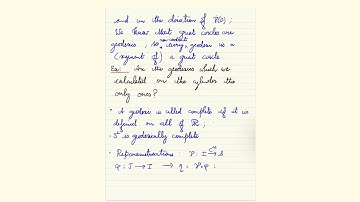 and in the direction of γ'(0);
We know that great circles are
geodesics, so every geodesic is a
(segment of) a great circle.
Ex: Are the geodesics which we
calculated on the cylinder the
only ones?
• A geodesic is called complete if it is
defined on all of ℝ.
• S² is geodesically complete
• Reparametrisations: γ: I → S
φ: J → I → η = γ∘φ;